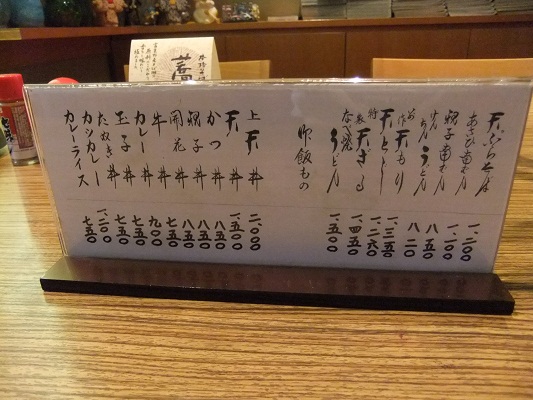 天ぷらそば 一、二〇〇
南ばん 一、一〇〇
親子南ばん 八五〇
うどん 八二〇
天もり 一、三五〇
天とじ 一、二六〇
天ざる 一、四五〇
なべ焼うどん 一、五〇〇
御飯もの
上天丼 二、〇〇〇
天丼 一、五〇〇
かつ丼 八五〇
親子丼 八五〇
開花丼 八五〇
牛丼 七五〇
カレー丼 九〇〇
玉子丼 七五〇
たぬき丼 七五〇
カツカレー 一、二〇〇
カレーライス 七五〇